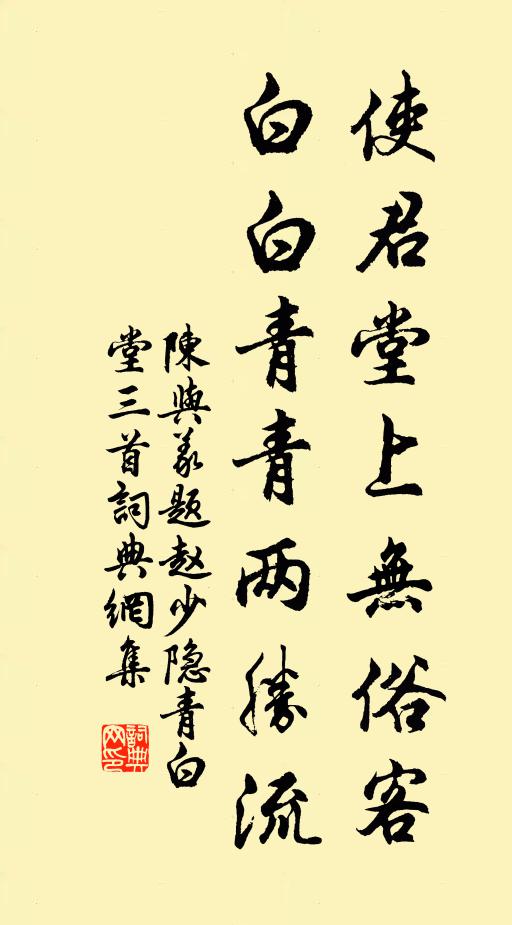 使君堂上無俗客
白白青青两勝流
陳與義题赵少隐青白
堂三首詞典網集
詞典网印